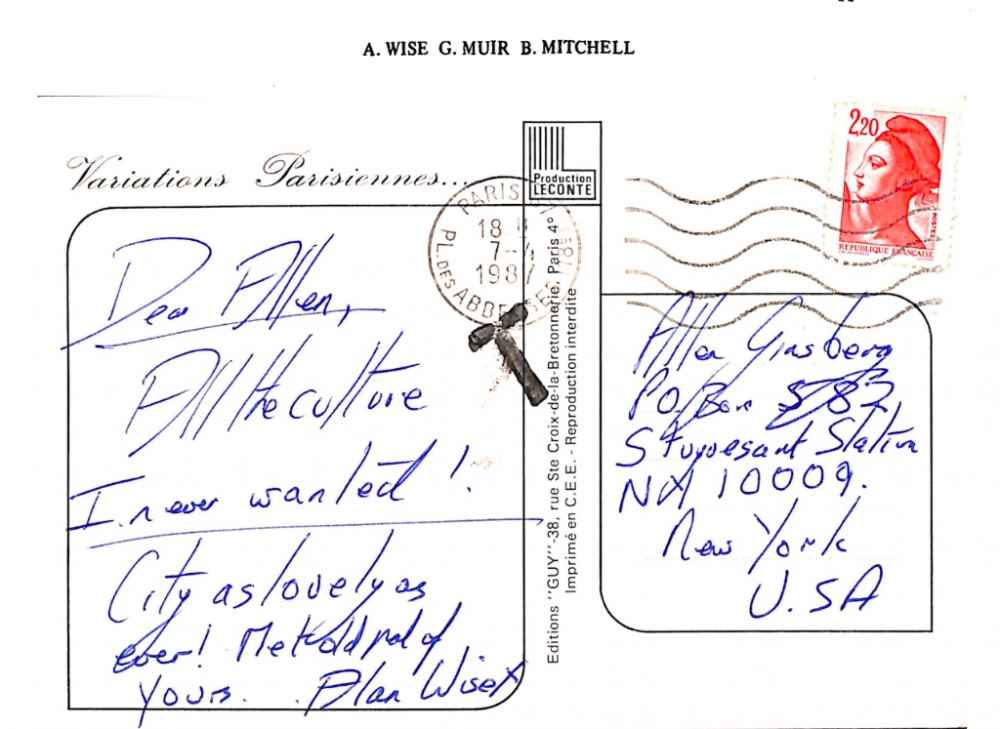 A. WISE G. MUIR B. MITCHELL
Variations Parisiennes...
Production
LECONTE
PARIS
18 H
7-4
1987
PL. DES ABBESSES (18e)
2,20
POSTES
REPUBLIQUE FRANÇAISE
Dear Allen,
All the culture
I never wanted!
City as lovely as
ever! Met old pal of
yours. . Alan Wise x
Editions "GUY"-38, rue Ste Croix-de-la-Bretonnerie, Paris 4°
Imprimé en C.E.E. - Reproduction interdite
Allen Ginsberg
P.O. Box 582
Stuyvesant Station
NY 10009.
New York
U.SA